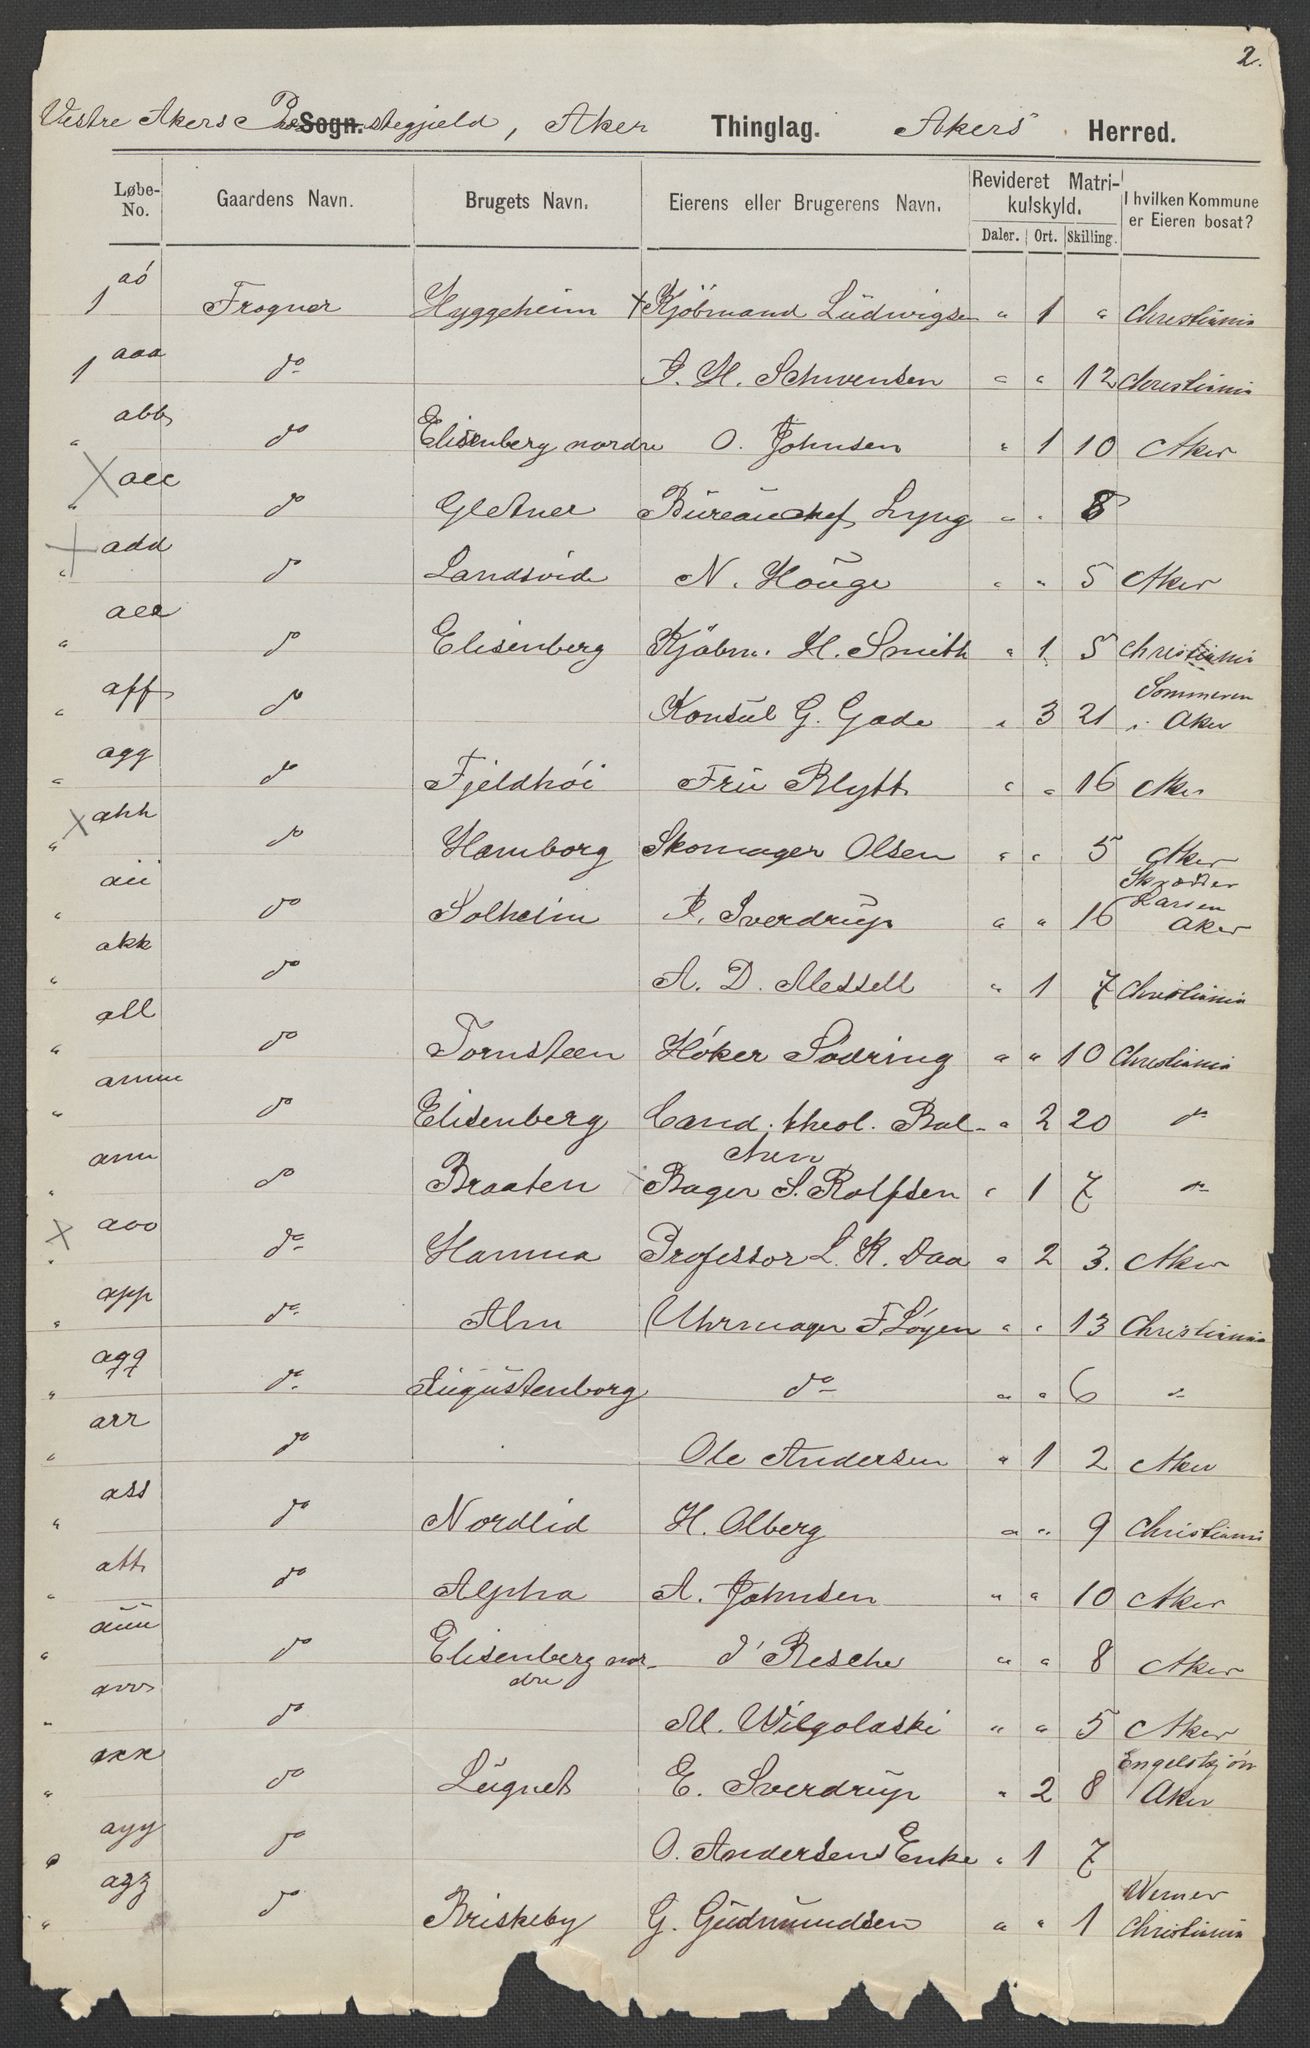 2.
Vestre Akers Præstegjeld, Aker Thinglag. Akers Herred.
Sogn.
Løbe-No. Gaardens Navn. Brugets Navn. Eierens eller Brugerens Navn. Revideret Matrikulskyld. I hvilken Kommune er Eieren bosat?
Daler. Ort. Skilling.
1 aö Frogner Hyggeheim + Kjöbmand Ludwigsen " 1 " Christiania
1 aaa do J. H. Schwensen " " 12 Christiania
" abb do Elisenberg nordre O. Johnsen " 1 10 Aker
X " acc do Bureauchef Lyng " " 8
+ " add do Landsvide N. Houge " " 5 Aker
" aee do Elisenberg Kjöbm. H. Smith " 1 5 Christiania
" aff do Konsul G. Gade " 3 21 Sommeren i Aker
" agg do Fjeldhöi Fru Blytt " " 16 Aker
X " ahh do Hamborg Skomager Olsen " " 5 Aker
" aii do Solheim J. Sverdrup " " 16 Skrædder Larsen Aker
" akk do A. D. Messell " 1 7 Christiania
" all do Tornsteen Höker Södring " " 10 Christiania
" amm do Elisenberg Cand. theol. Bal- " 2 20 do
chen
" ann do Braaten Bager S. Rolfsen " 1 7 do
X " aoo do Hamna Professor L. K. Daa " 2 3. Aker
" app do Alm Uhrmager F Löyen " " 13 Christiania
" aqq do Augustenborg do " " 6 do
" arr do Ole Andersen " 1 2 Aker
" ass do Nordlid H. Olberg " " 9 Christiania
" att do Alpha A. Johnsen " " 10 Aker
" auu do Elisenberg nor- d' Resche " " 8 Aker
dre
" avv do M. Wilgolaski " " 5 Aker
" axx do Lugnet E. Sverdrup " 2 8 Engelskjön Aker
" ayy do O. Andersens Enke " 1 7
" azz do Briskeby G. Gudmundsen " " 1 Werner Christiania